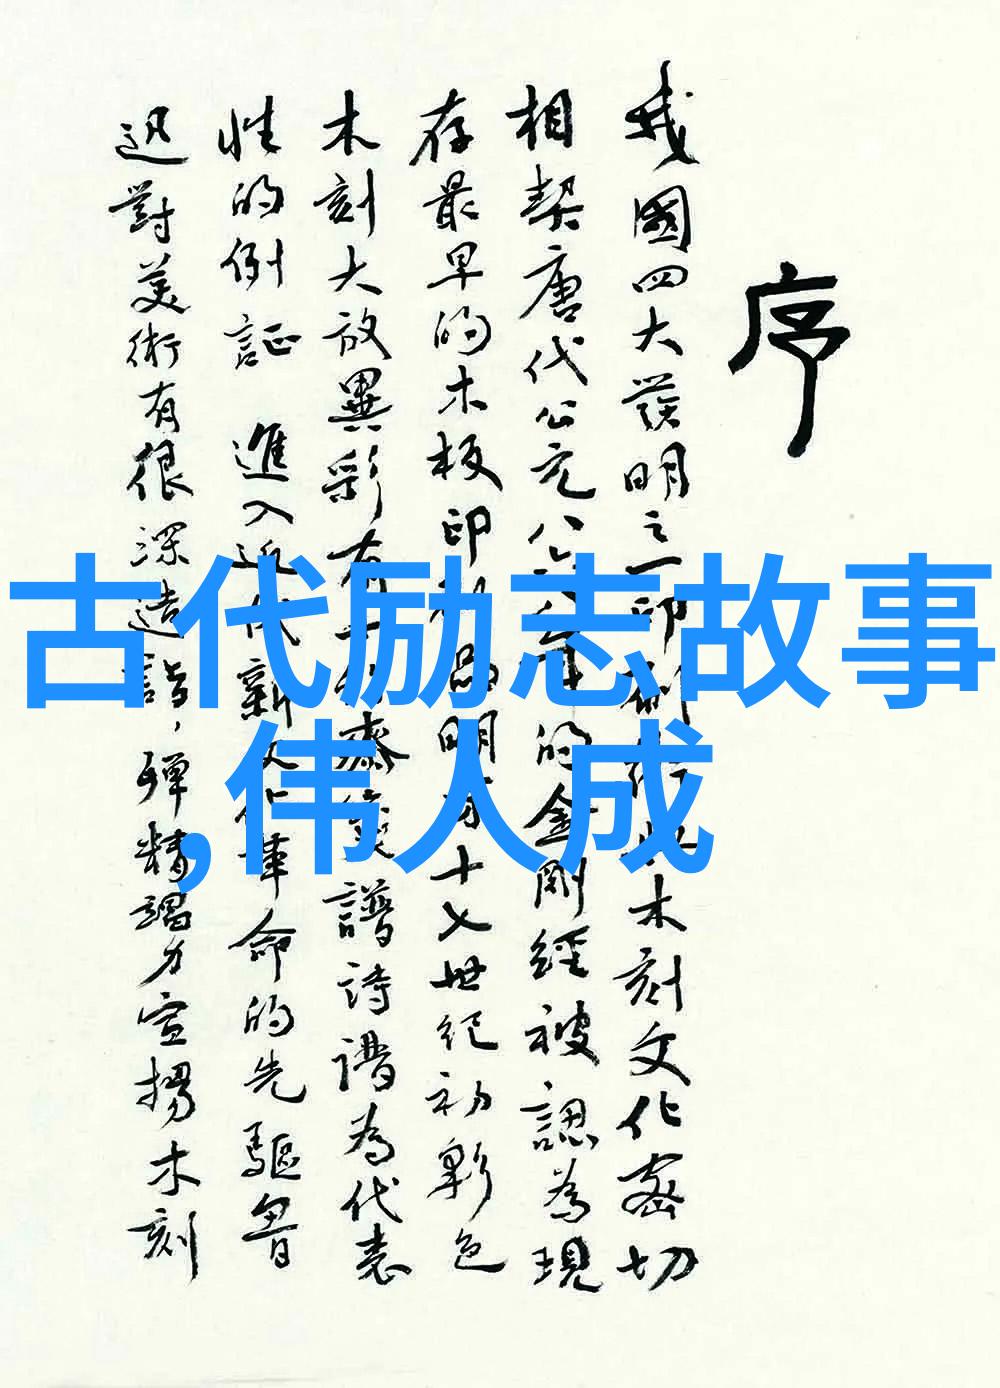 序
我國四大發明之一印刷術與木刻文化密切
相契唐代公元八六八年的金剛經被認為現
存最早的木板印刷品明万十七世纪初彩色
木刻大放異彩有十竹齋箋譜詩譜為代表
性的例証 進入近代新文化革命的先驅魯
迅對美術有很深造詣,殫精竭力宣揚木刻
古代励志故事
,伟人成